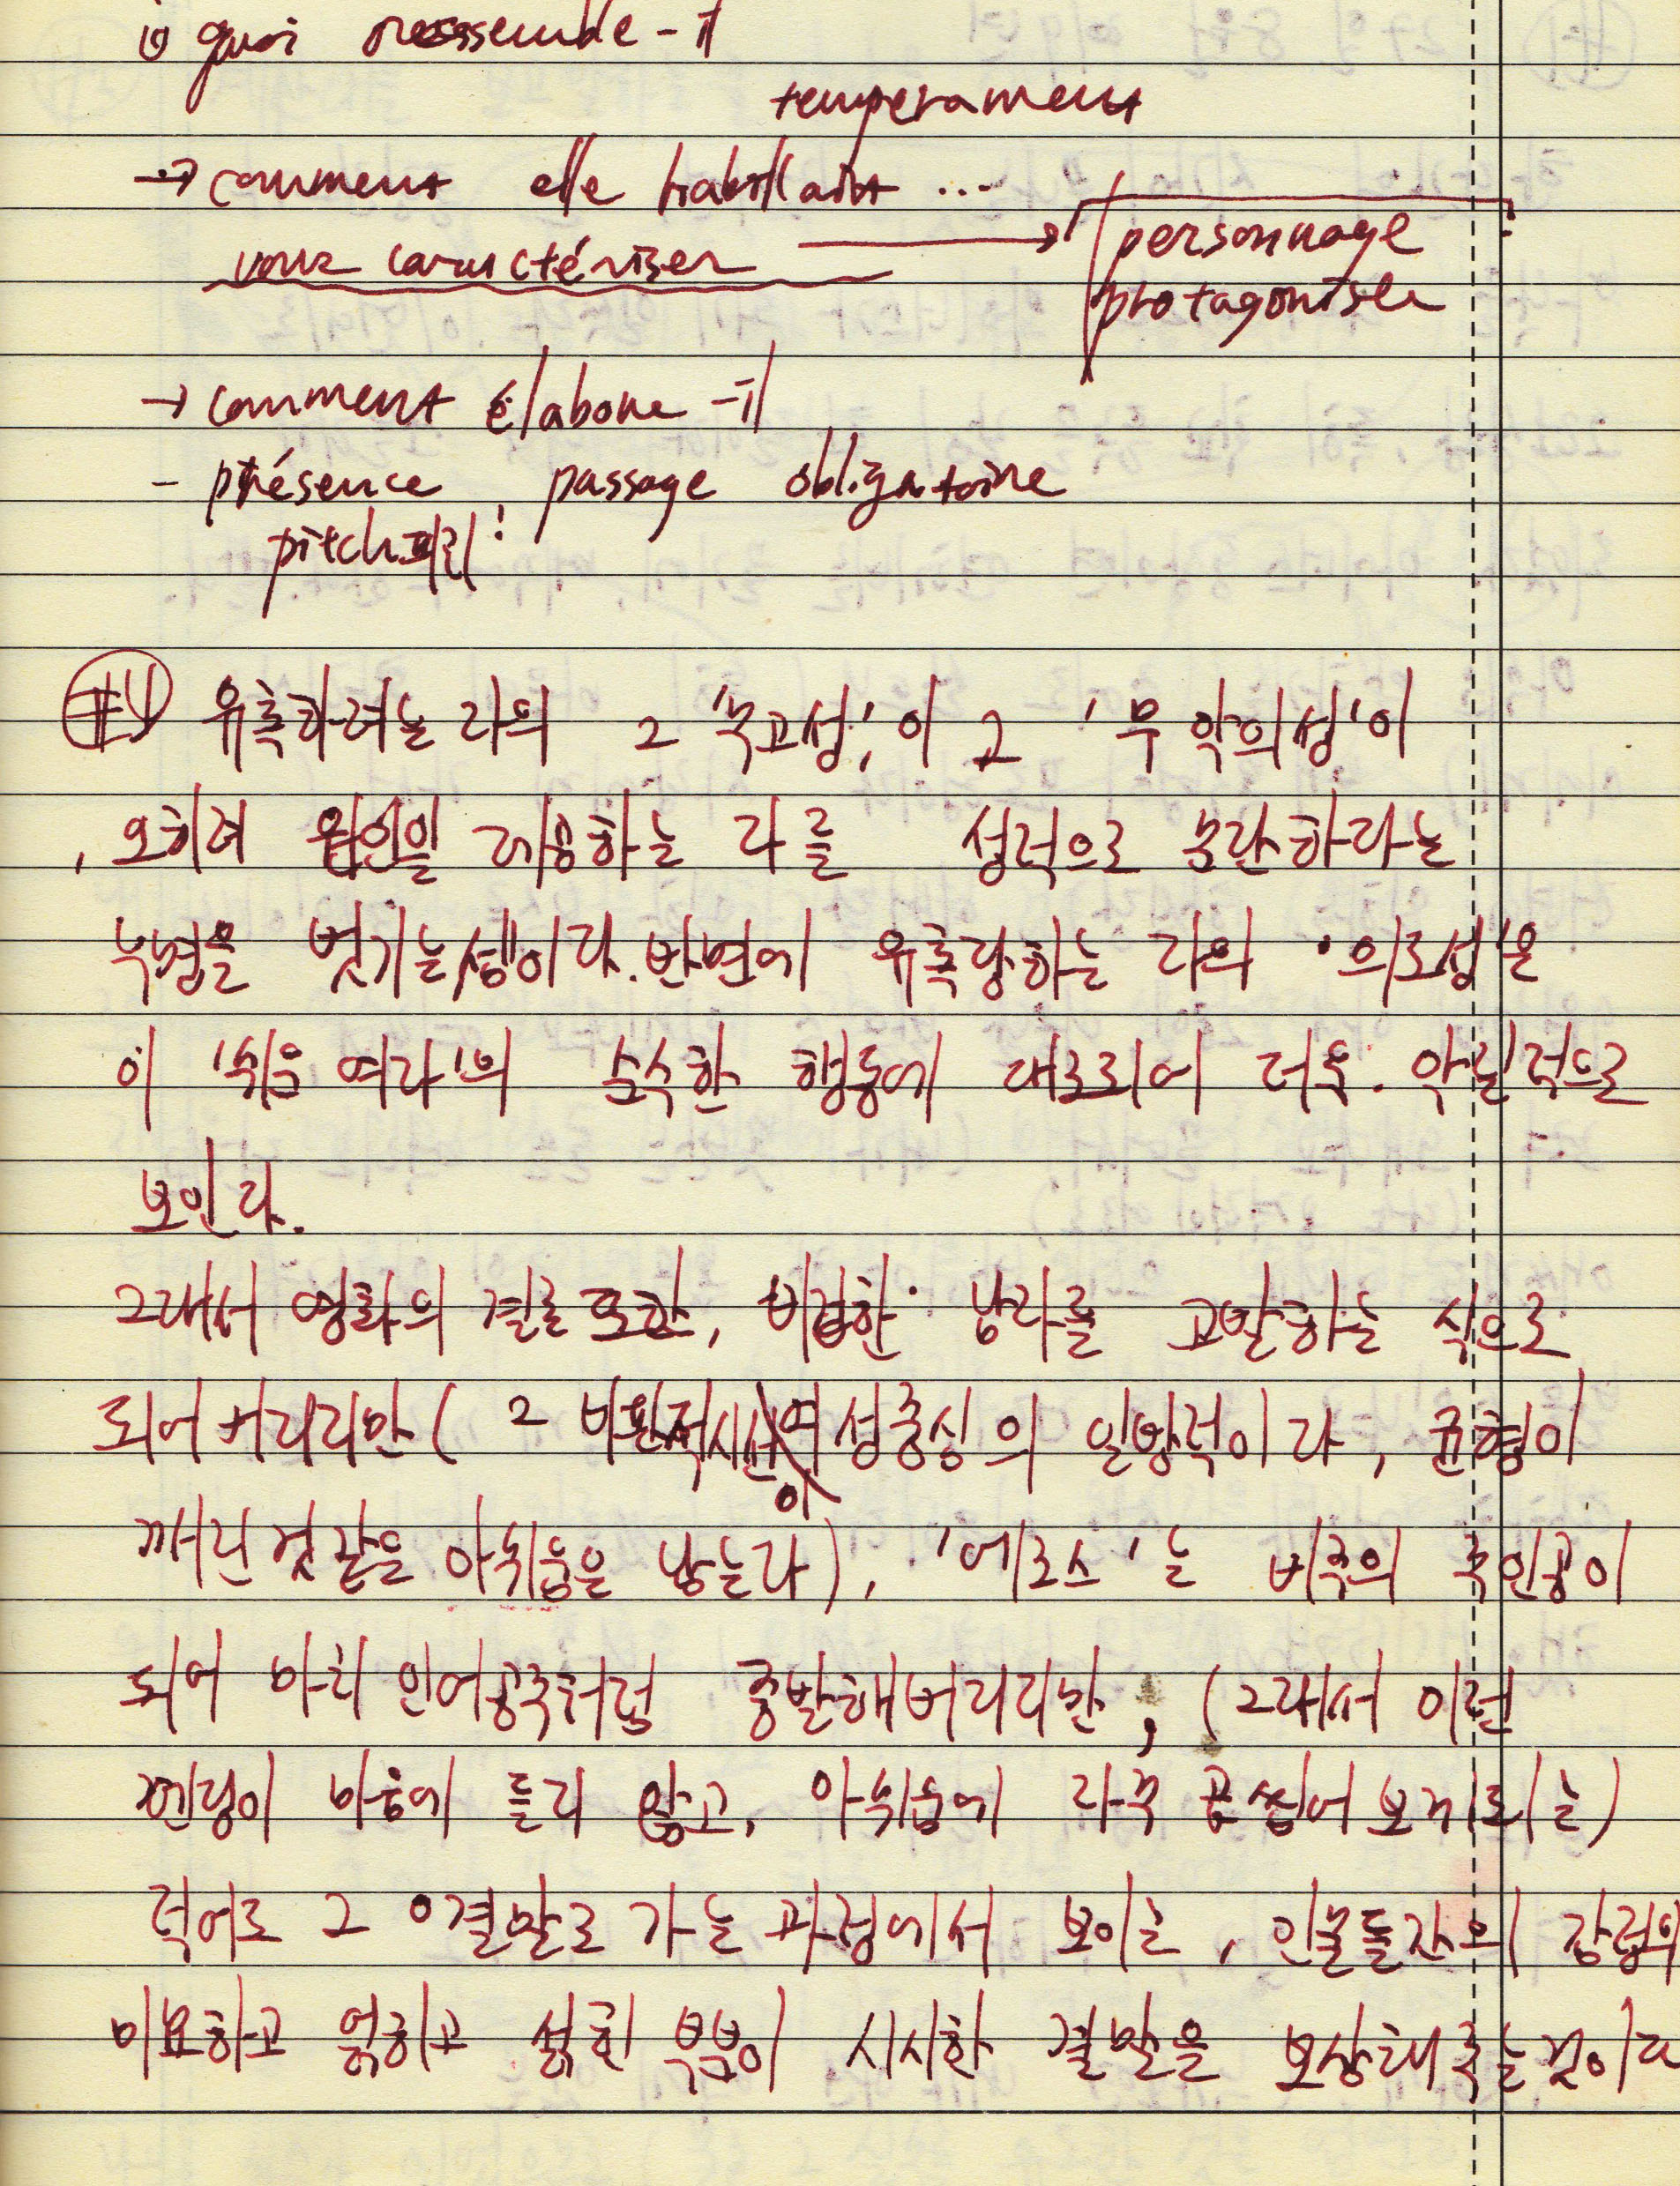 à quoi ressemble-il
temperament
→ comment elle habillait ...
vous caractériser → personnage
protagoniste
→ comment élabore-il
- présence, passage obligatoire
pitch 피리!
#4 유혹하려는 자의 그 '숙고성'이 그 '무악의성'이
, 오히려 원인을 제공하는 자를 성적으로 문란하다는
누명을 벗기는 셈이다. 반면에 유혹당하는 자의 '의도성'은
이 '쉬운 여자'의 순수한 행동에 대조되어 더욱 악질적으로
보인다.
그래서 영화의 결론 또한, 비겁한 남자를 고발하는 식으로
되어버리지만 (그 비판적 시선이 여성중심의 일방적이라, 균형이
깨진 것 같은 아쉬움은 남는다), '에로스'는 비극의 주인공이
되어 마치 인어공주처럼 증발해버리지만, (그래서 이런
엔딩이 마음에 들지 않고, 아쉬움에 자꾸 곱씹어 보게 되는)
적어도 그 결말로 가는 과정에서 보이는, 인물들간의 감정의
미묘하고 얽히고 섥힌 부분이 시시한 결말을 보상해 주는 것이다